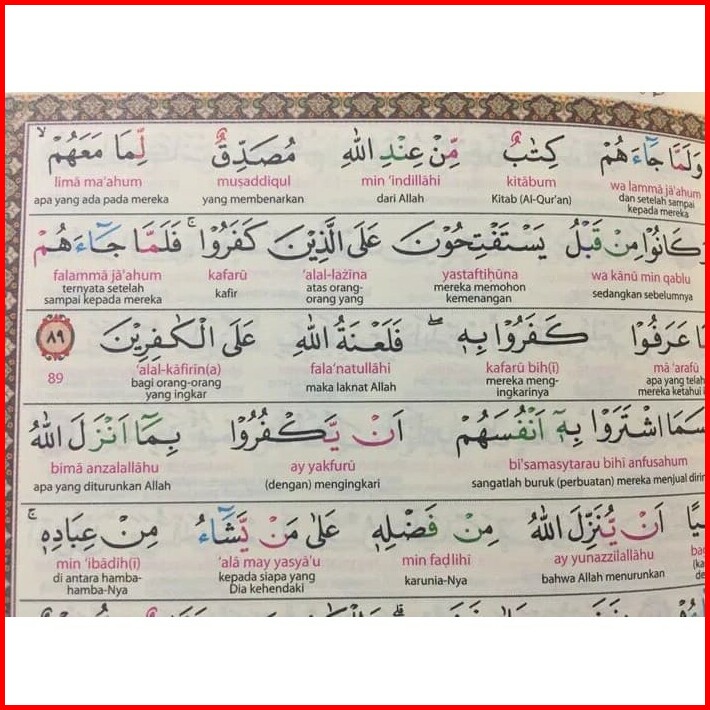 وَلَمَّا جَاۤءَهُمْ كِتٰبٌ مِّنْ عِنْدِ اللّٰهِ مُصَدِّقٌ لِّمَا مَعَهُمْۙ
wa lammā jā'ahum kitābum min 'indillāhi muṣaddiqul limā ma'ahum
dan setelah sampai kepada mereka Kitab (Al-Qur'an) dari Allah yang membenarkan apa yang ada pada mereka
وَكَانُوْا مِنْ قَبْلُ يَسْتَفْتِحُوْنَ عَلَى الَّذِيْنَ كَفَرُوْاۚ فَلَمَّا جَاۤءَهُمْ
wa kānū min qablu yastaftiḥūna 'alal-lażīna kafarū falammā jā'ahum
sedangkan sebelumnya mereka memohon kemenangan atas orang-orang yang kafir ternyata setelah sampai kepada mereka
عَرَفُوْا كَفَرُوْا بِهٖ ۖ فَلَعْنَةُ اللّٰهِ عَلَى الْكٰفِرِيْنَ ٨٩
mā 'arafū kafarū bih(ī) fala'natullāhi 'alal-kāfirīn(a) 89
apa yang telah mereka ketahui mereka meng-ingkarinya maka laknat Allah bagi orang-orang yang ingkar
اشْتَرَوْا بِهٖٓ اَنْفُسَهُمْ اَنْ يَّكْفُرُوْا بِمَآ اَنْزَلَ اللّٰهُ
bi'samasytarau bihī anfusahum ay yakfurū bimā anzalallāhu
sangatlah buruk (perbuatan) mereka menjual (dengan) mengingkari apa yang diturunkan Allah
اَنْ يُّنَزِّلَ اللّٰهُ مِنْ فَضْلِهٖ عَلٰى مَنْ يَّشَاۤءُ مِنْ عِبَادِهٖۚ
ay yunazzilallāhu min faḍlihī 'alā may yasyā'u min 'ibādih(ī)
bahwa Allah menurunkan karunia-Nya kepada siapa yang Dia kehendaki di antara hamba-hamba-Nya